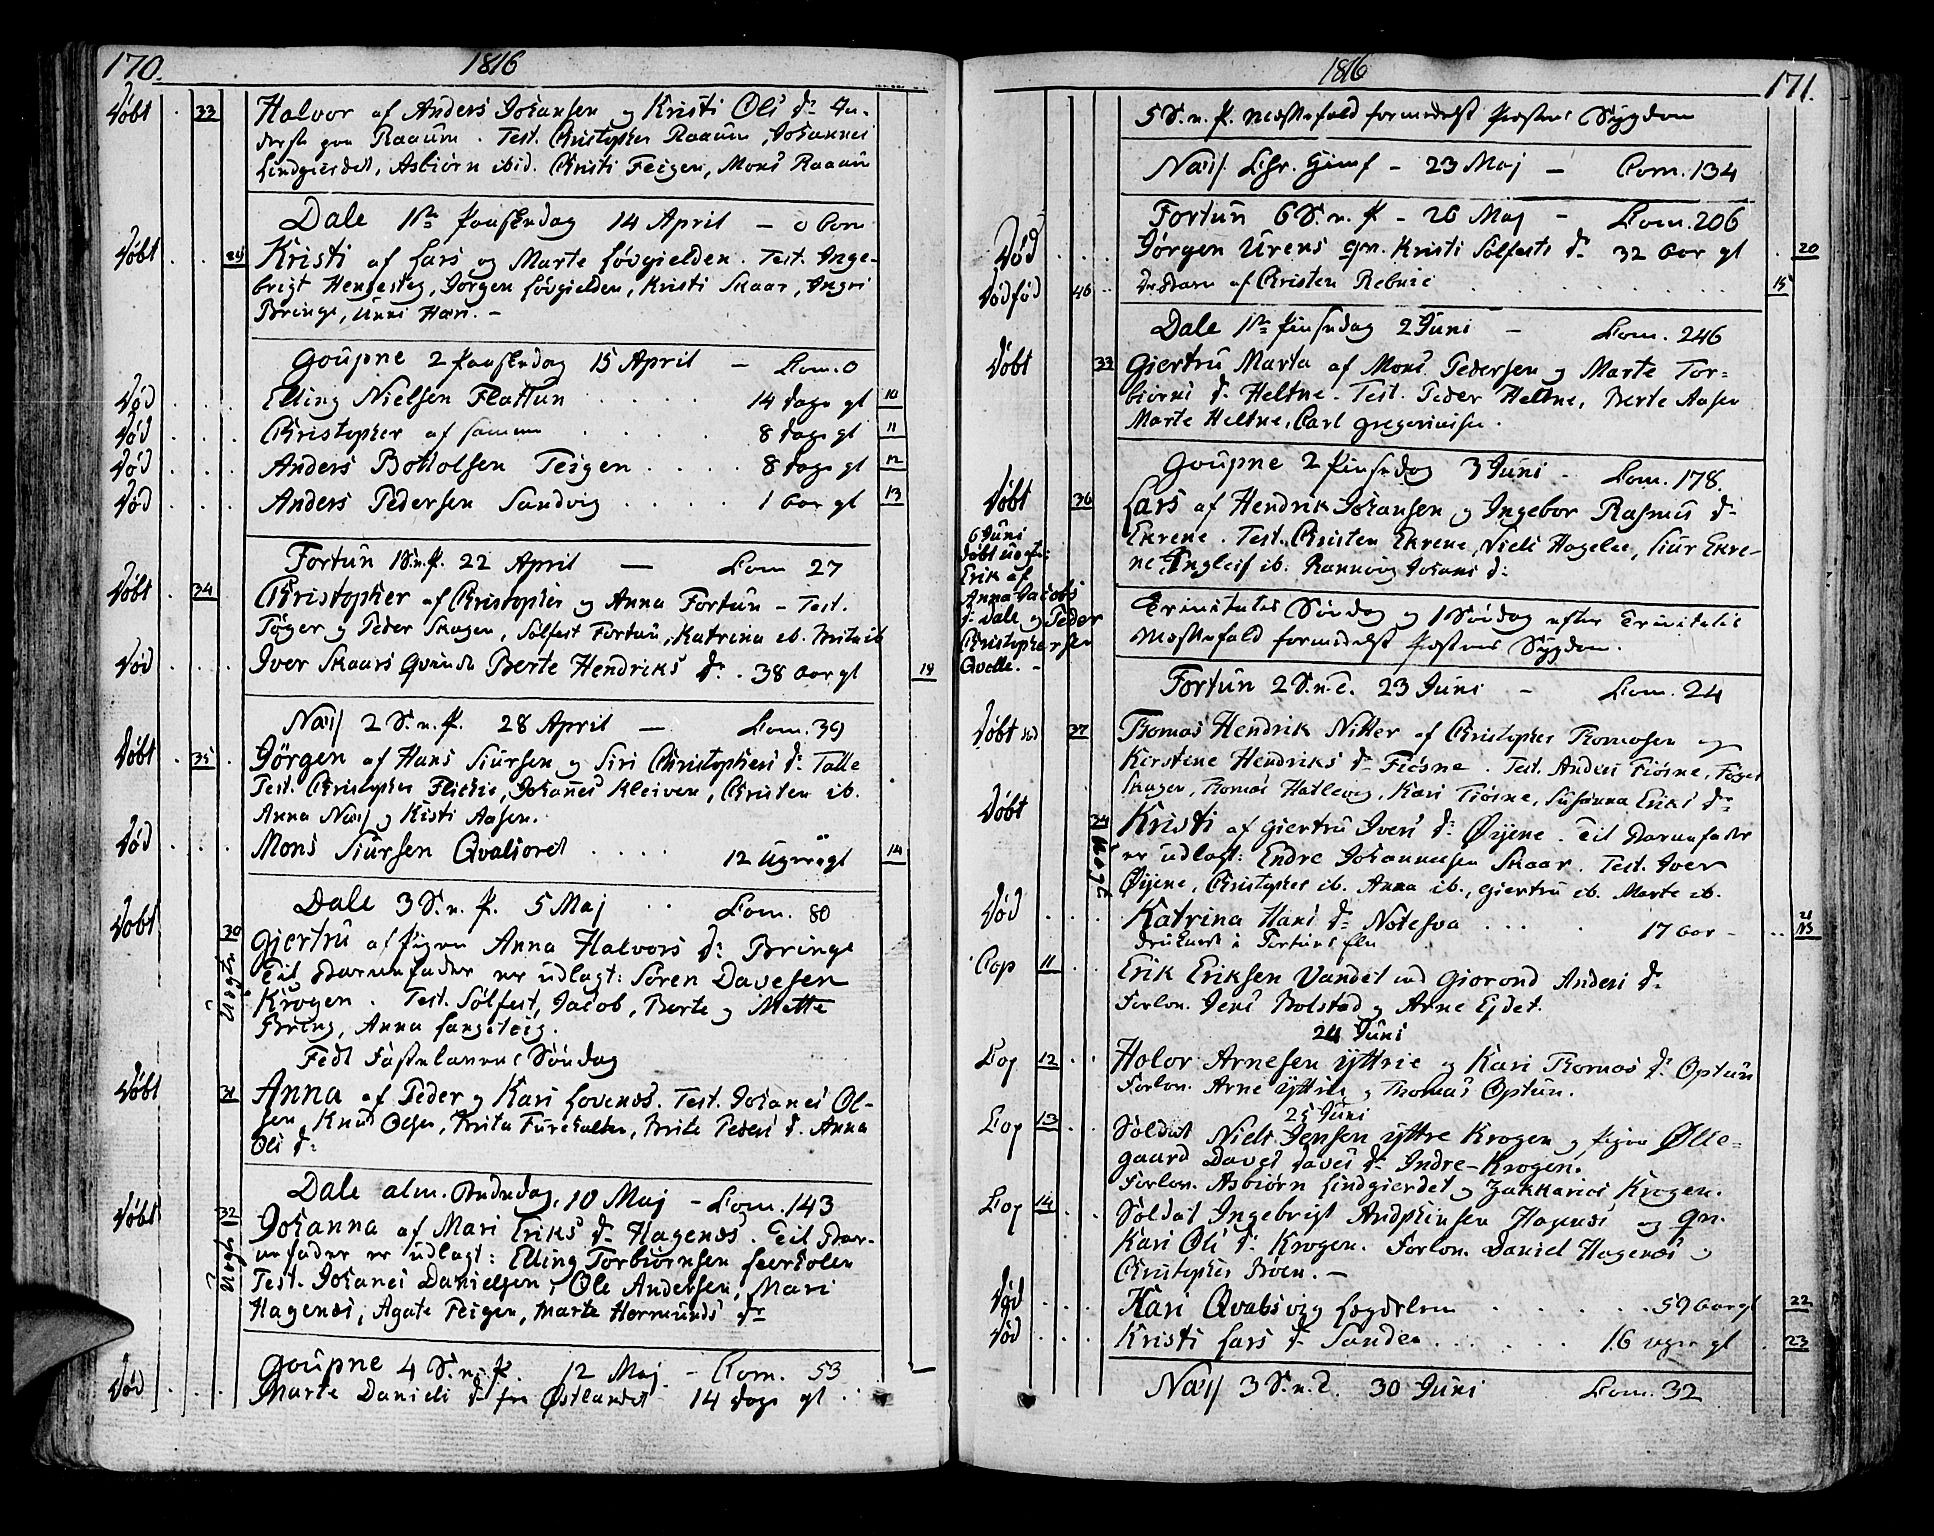 170. 1816
Døbt 33 Halvor af Anders Johansen og Kristi Ols Dr
Raaum. Test. Christopher Raaum, Johannes
Lindgierdet, Asbiørn ibid. Christi Teigen, Mons Raaum
Dale 1ste Paaskedag 14 April - 0 Com
Døbt 29 Kristi af Lars og Marte Løvgielden. Test. Inge-
brigt Hengesteg, Jørgen Løvgielden, Kristi Skaar, Ingri
Bringe, Unni Hari. -
Goupne 2 Paaskedag 15 April - Com. 0
Død Elling Nielsen Flattun 14 dage gl 10
Død Christopher af samme 8 dage gl 11
Død Anders Botholsen Teigen 8 dage gl 12
Død Anders Pedersen Sandvig 1 aar gl 13
Fortun 1 S. n. P. 22 April - Com 27
Døbt 34 Christopher af Christopher og Anna Fortun - Test.
Tøger og Peder Skagen, Sølfest Fortun, Katrina ib.
Død Iver Skaars Qvinde Berte Hendriks Dr. 38 aar gl 19
Næs 2 S. n. P. 28 April - Com. 39
Døbt 35 Jörgen af Hans Siursen og Siri Christophers Dr Talle
Test. Christopher Flickie, Johannes Kleiven, Christen ib.
Anna Næs og Kisti Aasen.
Død Mons Siursen Qvalsoret 12 Uger gl 14
Dale 3 S. n. P. 5 Maj Com. 80
Døbt 30 Uægte Gjertru af Pigen Anna Halvors Dr Bringe
Til Barnefader er udlagt: Søren Davesen
Krogen. Test. Sølfest, Jacob, Berte og Mette
Bring, Anna Langsteig.
Fedt Fastelavens Søndag
Døbt 31 Anna af Peder og Kari Lovenæs. Test. Johanes Ol-
sen, Knud Olsen, Brita Furehalten, Brite Peders Dr Anna
Ols Dr
Dale alm. Bededag, 10 Maj - Com. 143
Døbt 32 Uægte Johanna af Mari Eriks Dr Hagenæs. Til Bar-
nefader er udlagt: Elling Torbiørnsen Leerholen
Test. Johanes Danielsen, Ole Andersen, Mari
Hagenæs, Agate Teigen, Marte Hermunds Dr
Goupne 4 S. n. P. 12 Maj - Com. 53
Død Marte Daniels Dr fra Østlandet 14 dage gl
1816 171.
5 S. n. P. Messefald formedelst Præstens Sygdom
Næs. Chr. Himf - 23 Maj - Com. 134
Fortun 6 S. n. P. - 26 Maj - Com. 206
Død Jørgen Urens qn. Kristi Sølfests Dr 32 Aar gl 20
Dødfød 46 Dr Barn af Christen Rebnie 15
Dale 1ste Pinsedag 2 Juni - Com. 246
Døbt 33 Giertru Marta af Mons Pedersen og Marte Tor-
biørns Dr Heltne. Test. Peder Heltne, Berte Aasen
Marte Heltne, Carl
Goupne 2 Pinsedag 3 Juni - Com. 178.
Døbt 36 Lars af Hendrik Johansen og Ingebor Rasmus Dr
Ekrene. Test. Christen Ekrene, Niels Hagelee, Siur Ekre-
ne Engleif ib. Rannvig Johans Dr
6 Juni
døbt uægte:
Erik af
Anna Jacobs
Dr Dale og Peder
Christophersen
Qvalle. -
Trinitatis Søndag og 1 Søndag efter Trinitatis
Messefald formedelst Præstens Sygdom.
Fortun 2 S. n. T. 23 Juni - Com. 24
Døbt 37 Thomas Hendrik Nitter af Christopher Thomasen og
Kirstene Hendriks Dr Fiøsne. Test. Anders Fiøsne, Tøger
Skagen, Thomas Hatlevig, Kari Fiøsne, Susanna Eriks Dr
Døbt 34 Uægte Kristi af Giertru Ivers Dr Øyene. Til Barnefader
er udlagt: Endre Johannesen Skaar. Test. Iver
Øyene, Christopher ib. Anna ib., Giertru ib. Marte ib.
Død Katrina Hans Dr Notesva 17 aar - 21
druknet i Fortuns Elv
Cop 11 Erik Eriksen Vandet ved Giorond Anders Dr
Forlov. Jens Bolstad og Arne Ejdet.
24 Juni
Cop 12 Holvor Arnesen Yttrie og Kari Thomas Dr Optun
Forlov. Arne Yttrie og Thomas Optun.
25 Juni
Cop 13 Soldat Niels Jensen Yttre Krogen og Pigen Olle-
gaard Daves Daves Dr Indre-Krogen.
Forlov. Asbiørn Lindgierdet og Zakkarias Krogen.
Cop 14 Soldat Ingebrigt Andphinsen Hagenæs og qn.
Kari Ols Dr Krogen. Forlov. Daniel Hagenæs og
Christopher Broen. -
Død Kari Qvabsvig Lægdslem 59 aar gl 22
Død Kristi Lars Dr Sanden 16 uger gl 23
Næs 3 S. n. T. 30 Juni Com. 32